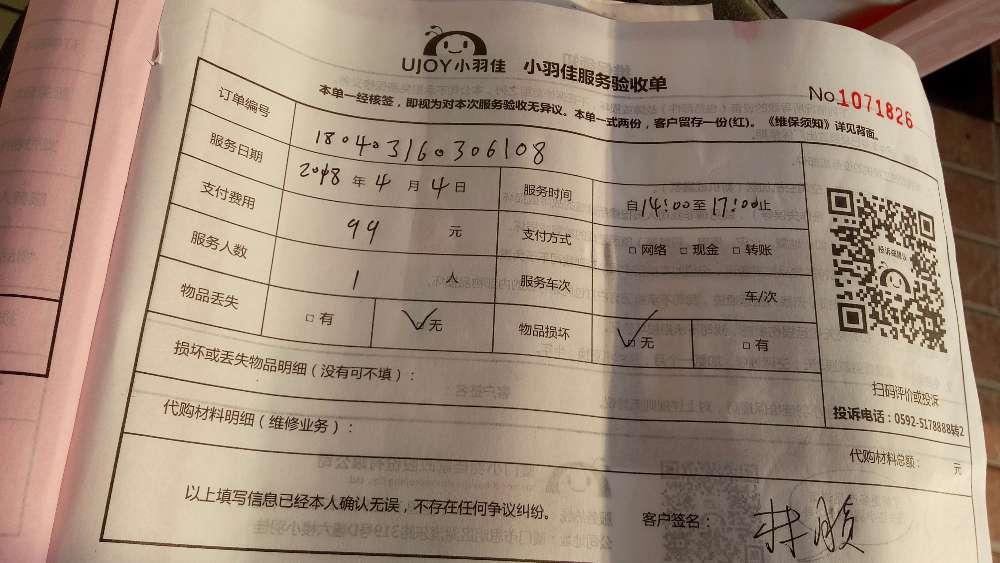 UJOY小羽佳 小羽佳服务验收单
No.1071826
本单一经核签，即视为对本次服务验收无异议。本单一式两份，客户留存一份(红)。《维保须知》详见背面。
订单编号 180403160306108
服务日期 2018 年 4 月 4 日 服务时间 自14:00至17:00止
支付费用 99 元 支付方式 □网络 □现金 □转账
服务人数 1 人 服务车次 车/次
物品丢失 □有 ☑无 物品损坏 ☑无 □有
损坏或丢失物品明细（没有可不填）：
代购材料明细（维修业务）：
扫码评价或投诉
投诉电话：0592-5178888转2
代购材料总额： 元
以上填写信息已经本人确认无误，不存在任何争议纠纷。 客户签名：